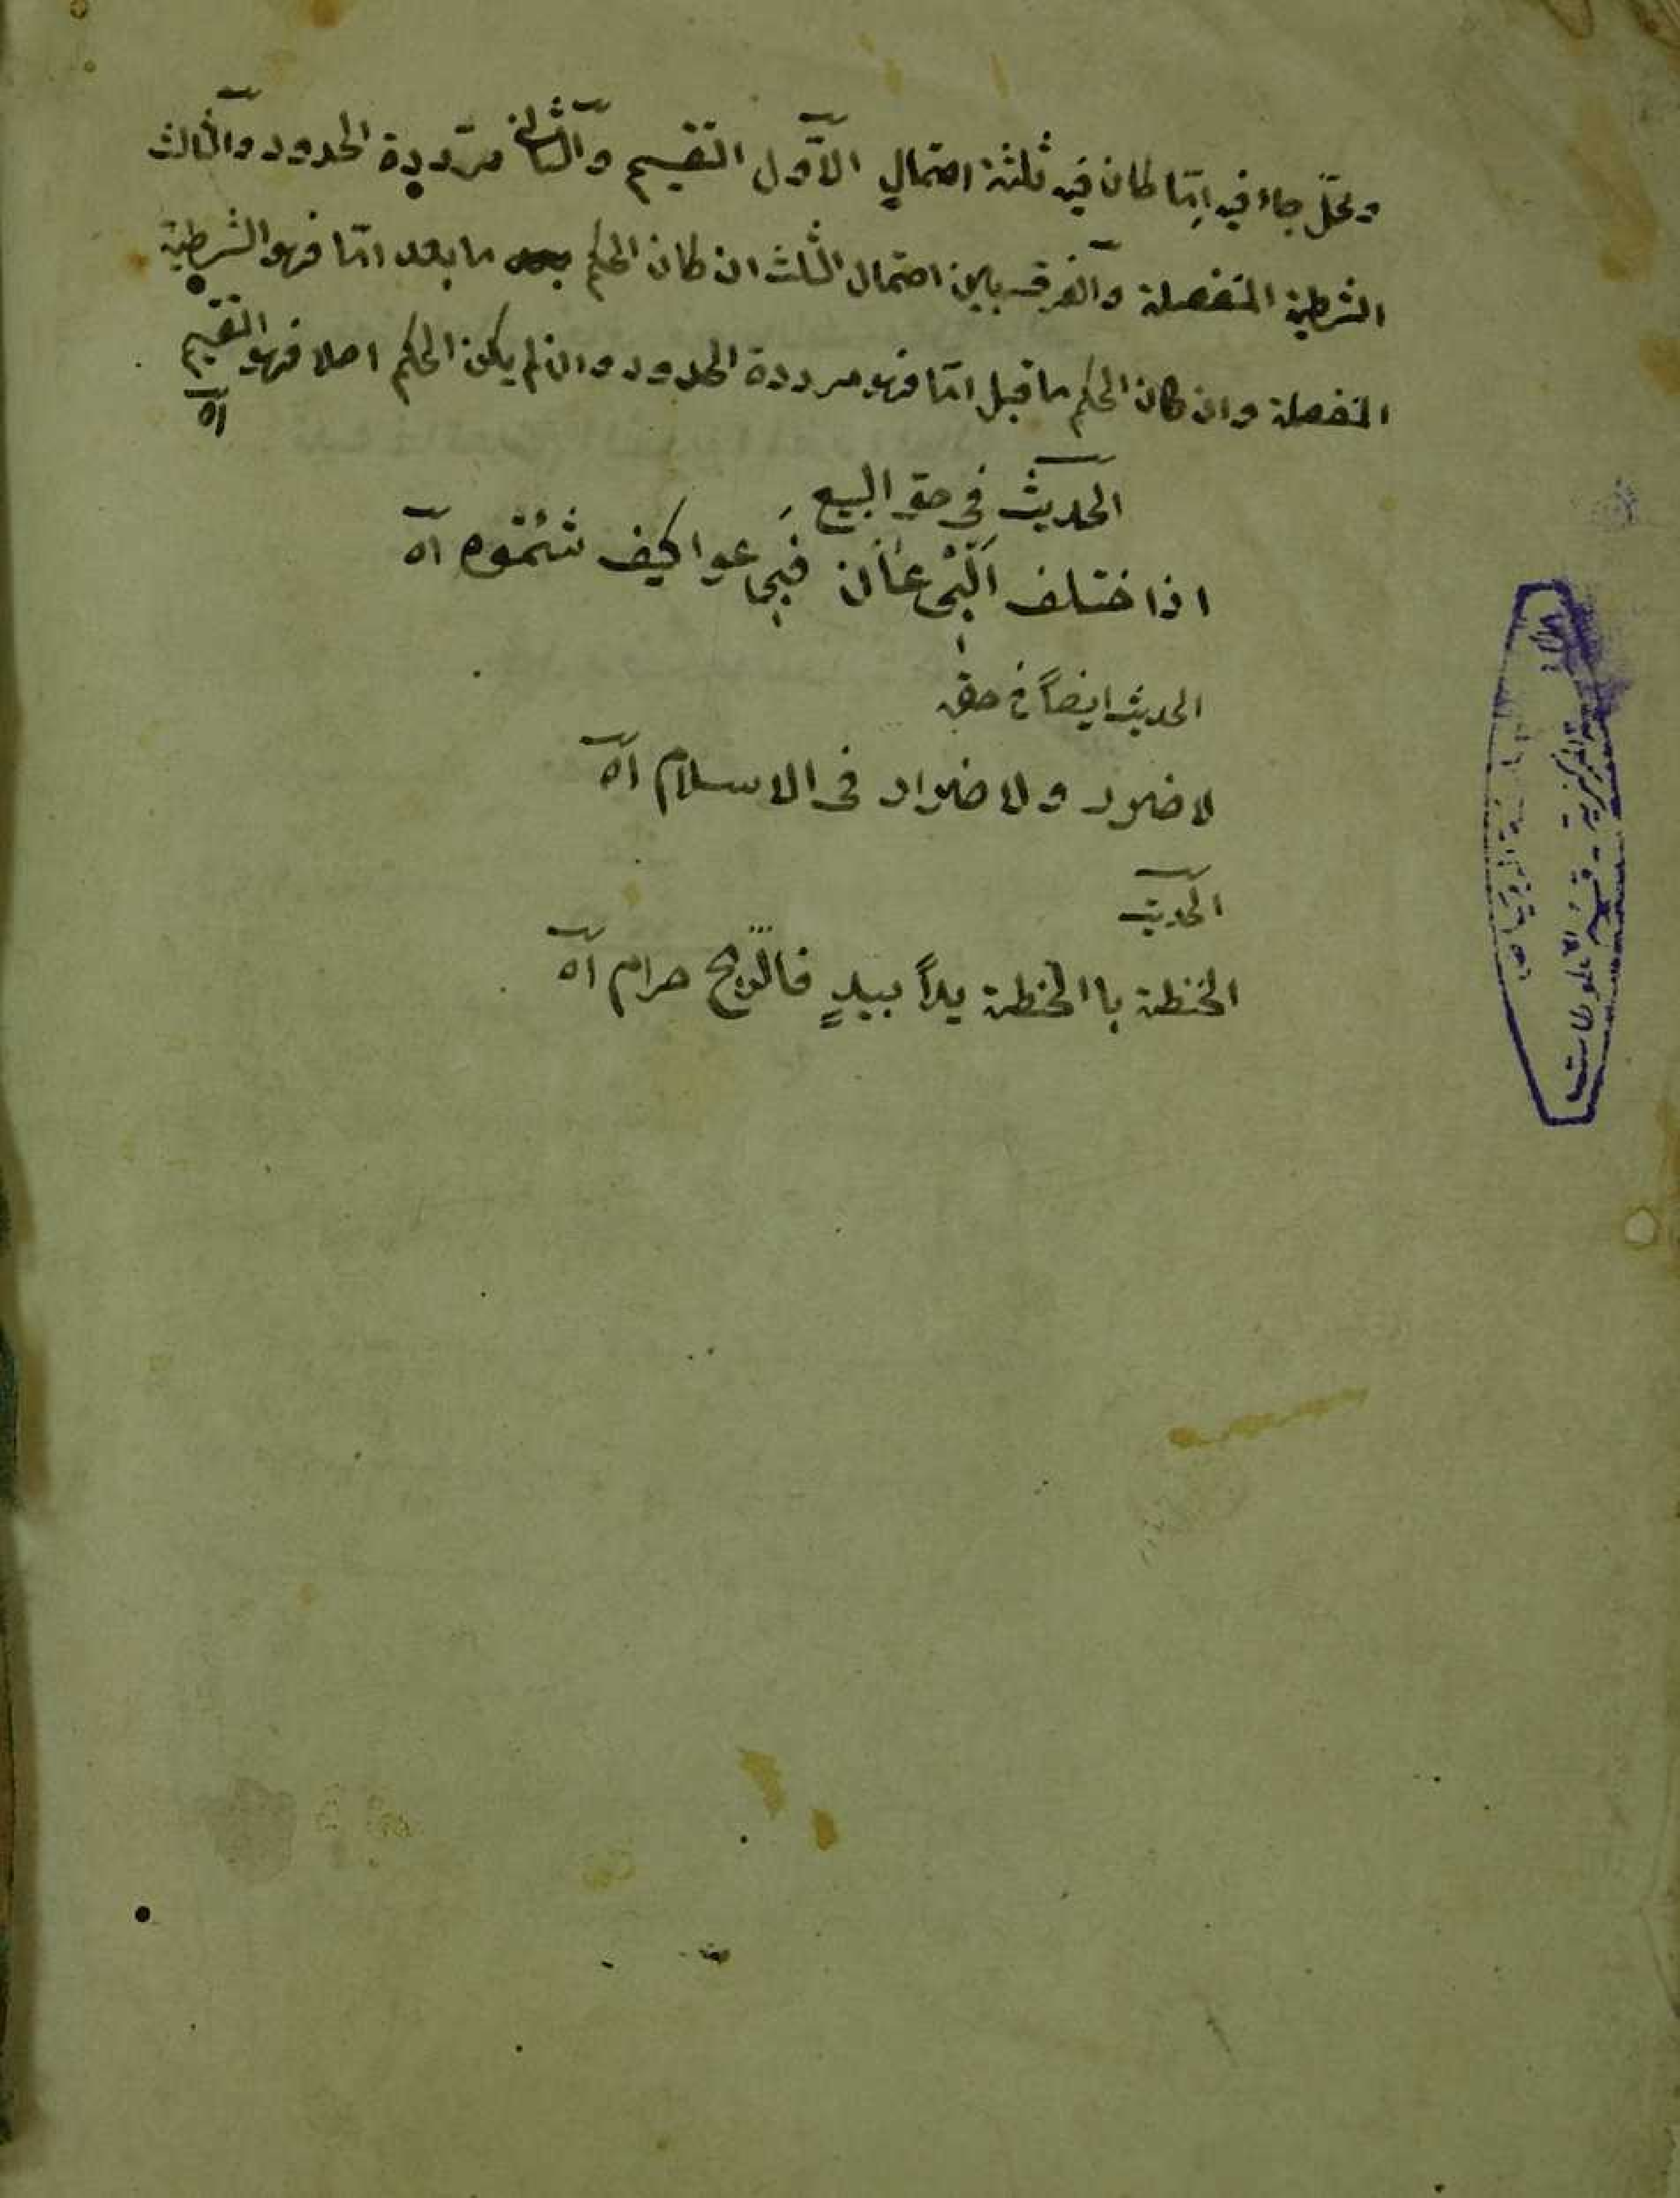 ومحل جاء فيه اِمّا كان فيه ثلثة احتمالٍ الاوّل التقسيم والثاني مردّدة الحدود والثالث
الشرطية المنفصلة والفرق بين احتمال الثلث ان كان الحكم ما بعد امّا فهو الشرطية
المنفصلة وان كان الحكم ما قبل امّا فهو مرددة الحدود وان لم يكن الحكم اصلا فهو التقسيم
اه
الحديث في حق البيع
اذا ختلف الجنسان فبيعوا كيف شئتموه اه
الحديث ايضاً في حقه
لا ضرر ولا ضرار فى الاسلام اه
الحديث
الحنطة با الحنطة يداً بيدٍ فالربح حرام اه
المركزية - قسم المخطوطات